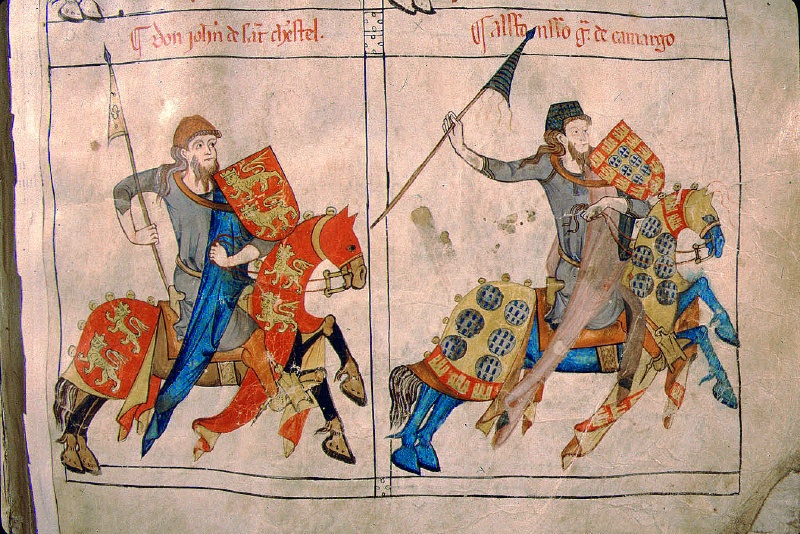 ¶ don john de sāt chestel.
¶ alffonsso gᵃ de camargo